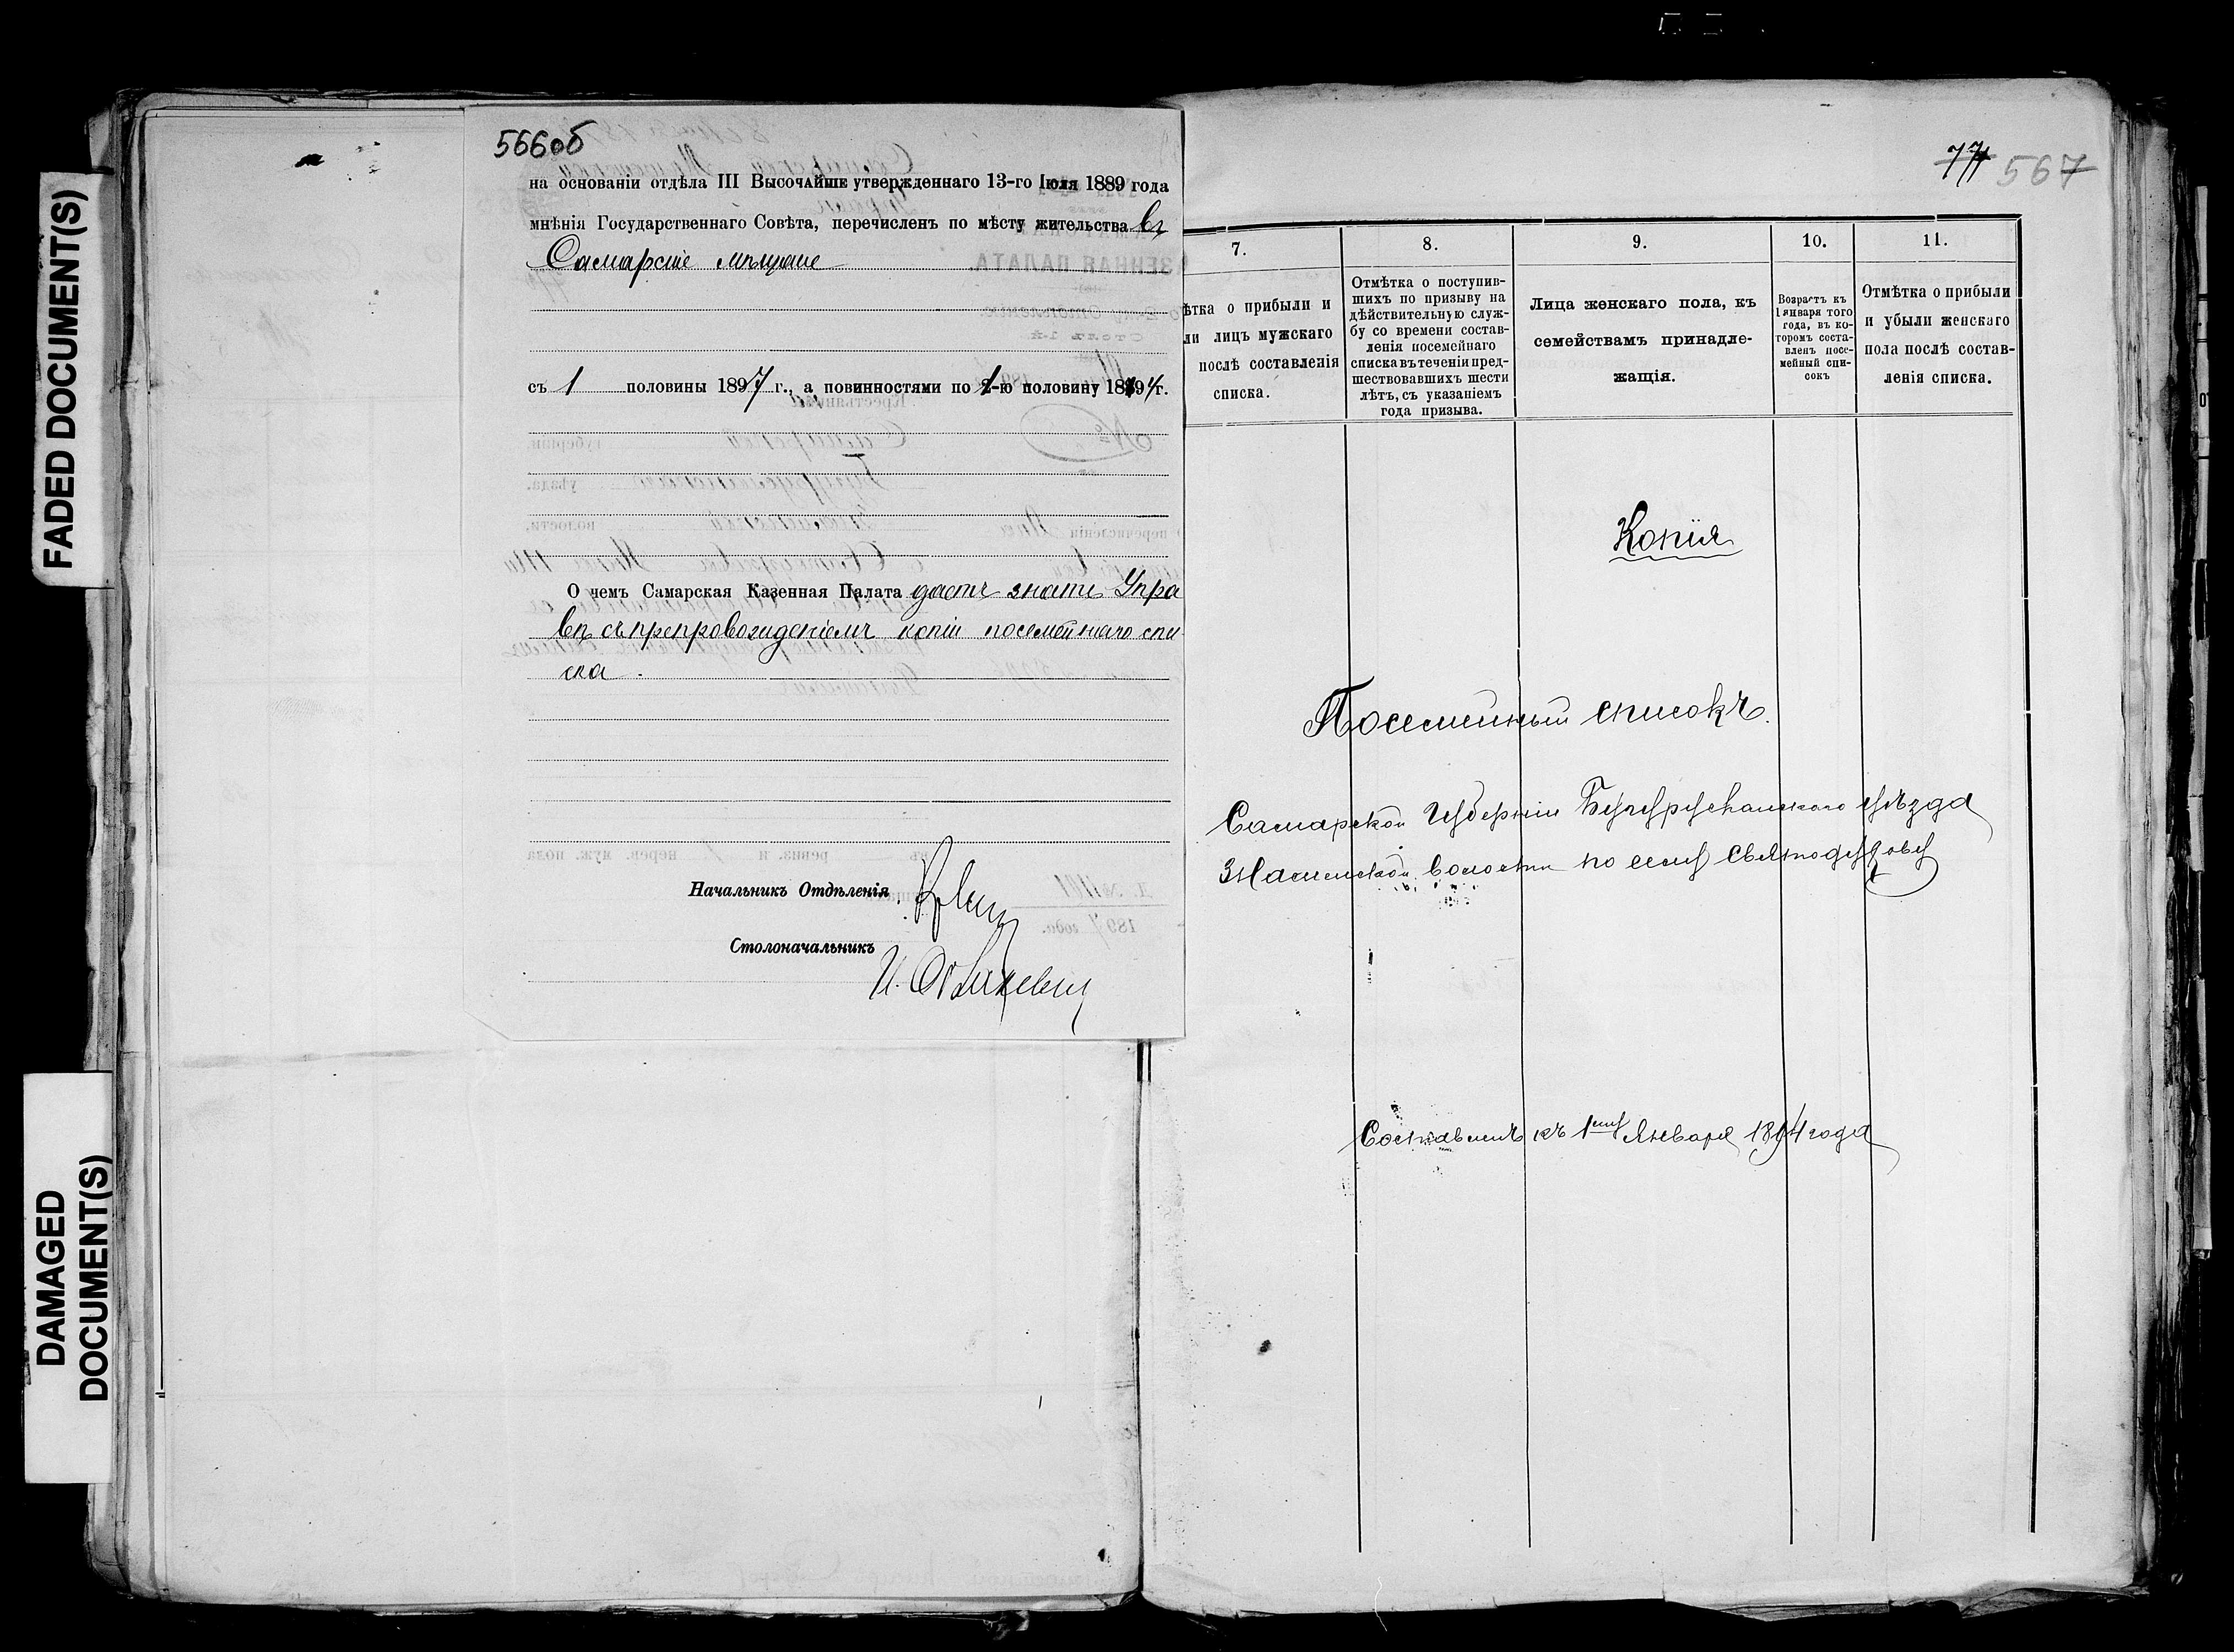 FADED DOCUMENT(S)
DAMAGED
DOCUMENT(S)
566об
на основаніи отдѣла III Высочайше утвержденнаго 13-го Іюля 1889 года
мнѣнія Государственнаго Совѣта, перечисленъ по мѣсту жительства въ
Самарскіе мѣщане
съ 1 половины 1897 г., а повинностями по 1-ю половину 1897 г.
О чемъ Самарская Казенная Палата даетъ знать Упра
вѣ съ препровожденіемъ копіи посемейнаго спи
ска.
Начальникъ Отдѣленія
Столоначальникъ
77 567
7. 8. 9. 10. 11.
ѣтка о прибыли и
ли лицъ мужскаго
послѣ составленія
списка.
Отмѣтка о поступив-
шихъ по призыву на
дѣйствительную служ-
бу со времени состав-
ленія посемейнаго
списка въ теченіи пред-
шествовавшихъ шести
лѣтъ, съ указаніемъ
года призыва.
Лица женскаго пола, къ
семействамъ принадле-
жащія.
Возрастъ къ
1 января того
года, въ ко-
торомъ соста-
вленъ посе-
мейный спи-
сокъ
Отмѣтка о прибыли
и убыли женскаго
пола послѣ состав-
ленія списка.
Копія
Посемейный списокъ.
Самарской Губерніи Бугурусланскаго уѣзда
Знаменской волости по селу Святодухову
Составленъ къ 1му Января 1894 года